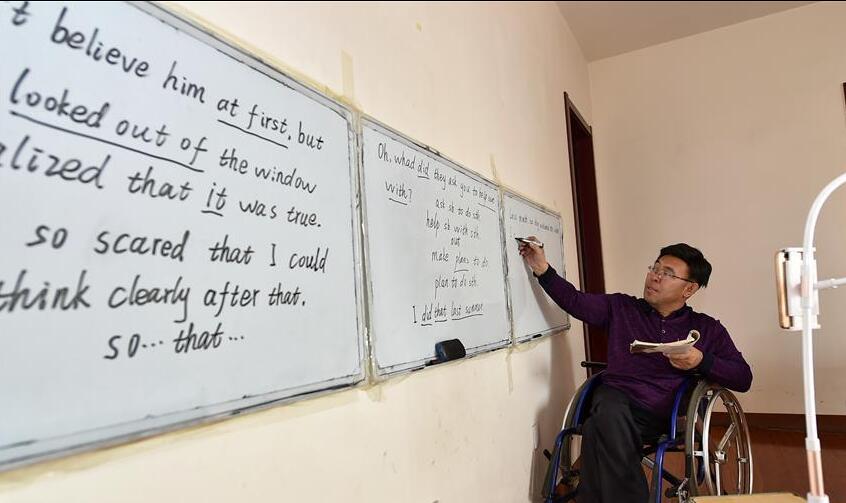 t believe him at first, but
looked out of the window
alized that it was true.
so scared that I could
think clearly after that.
so... that...
Oh, whad did they ask you to help out
with?
ask sb to do sth.
help sb with sth.
out
make plans to do.
plan to do sth.
I did that last summer